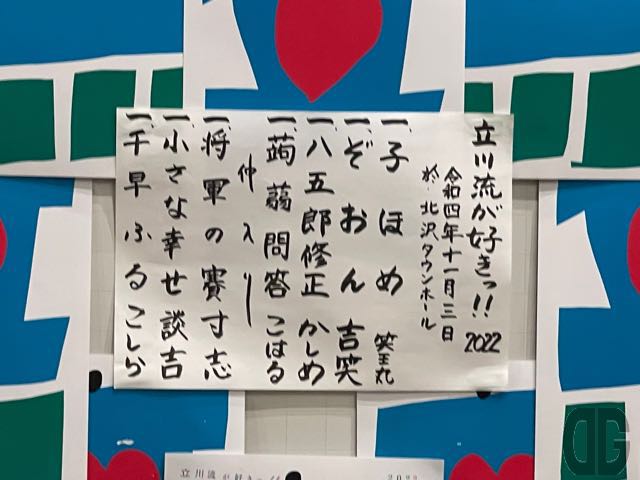 立川流が好きっ!! 2022
令和四年十一月三日
於・北沢タウンホール
一、子ほめ 笑王丸
一、ぞおん 吉笑
一、八五郎修正 かしめ
一、蒟蒻問答 こはる
仲入り
一、将軍の賽 寸志
一、小さな幸せ 談吉
一、千早ふる こしら
立川流が好きっ!! 2022
DG